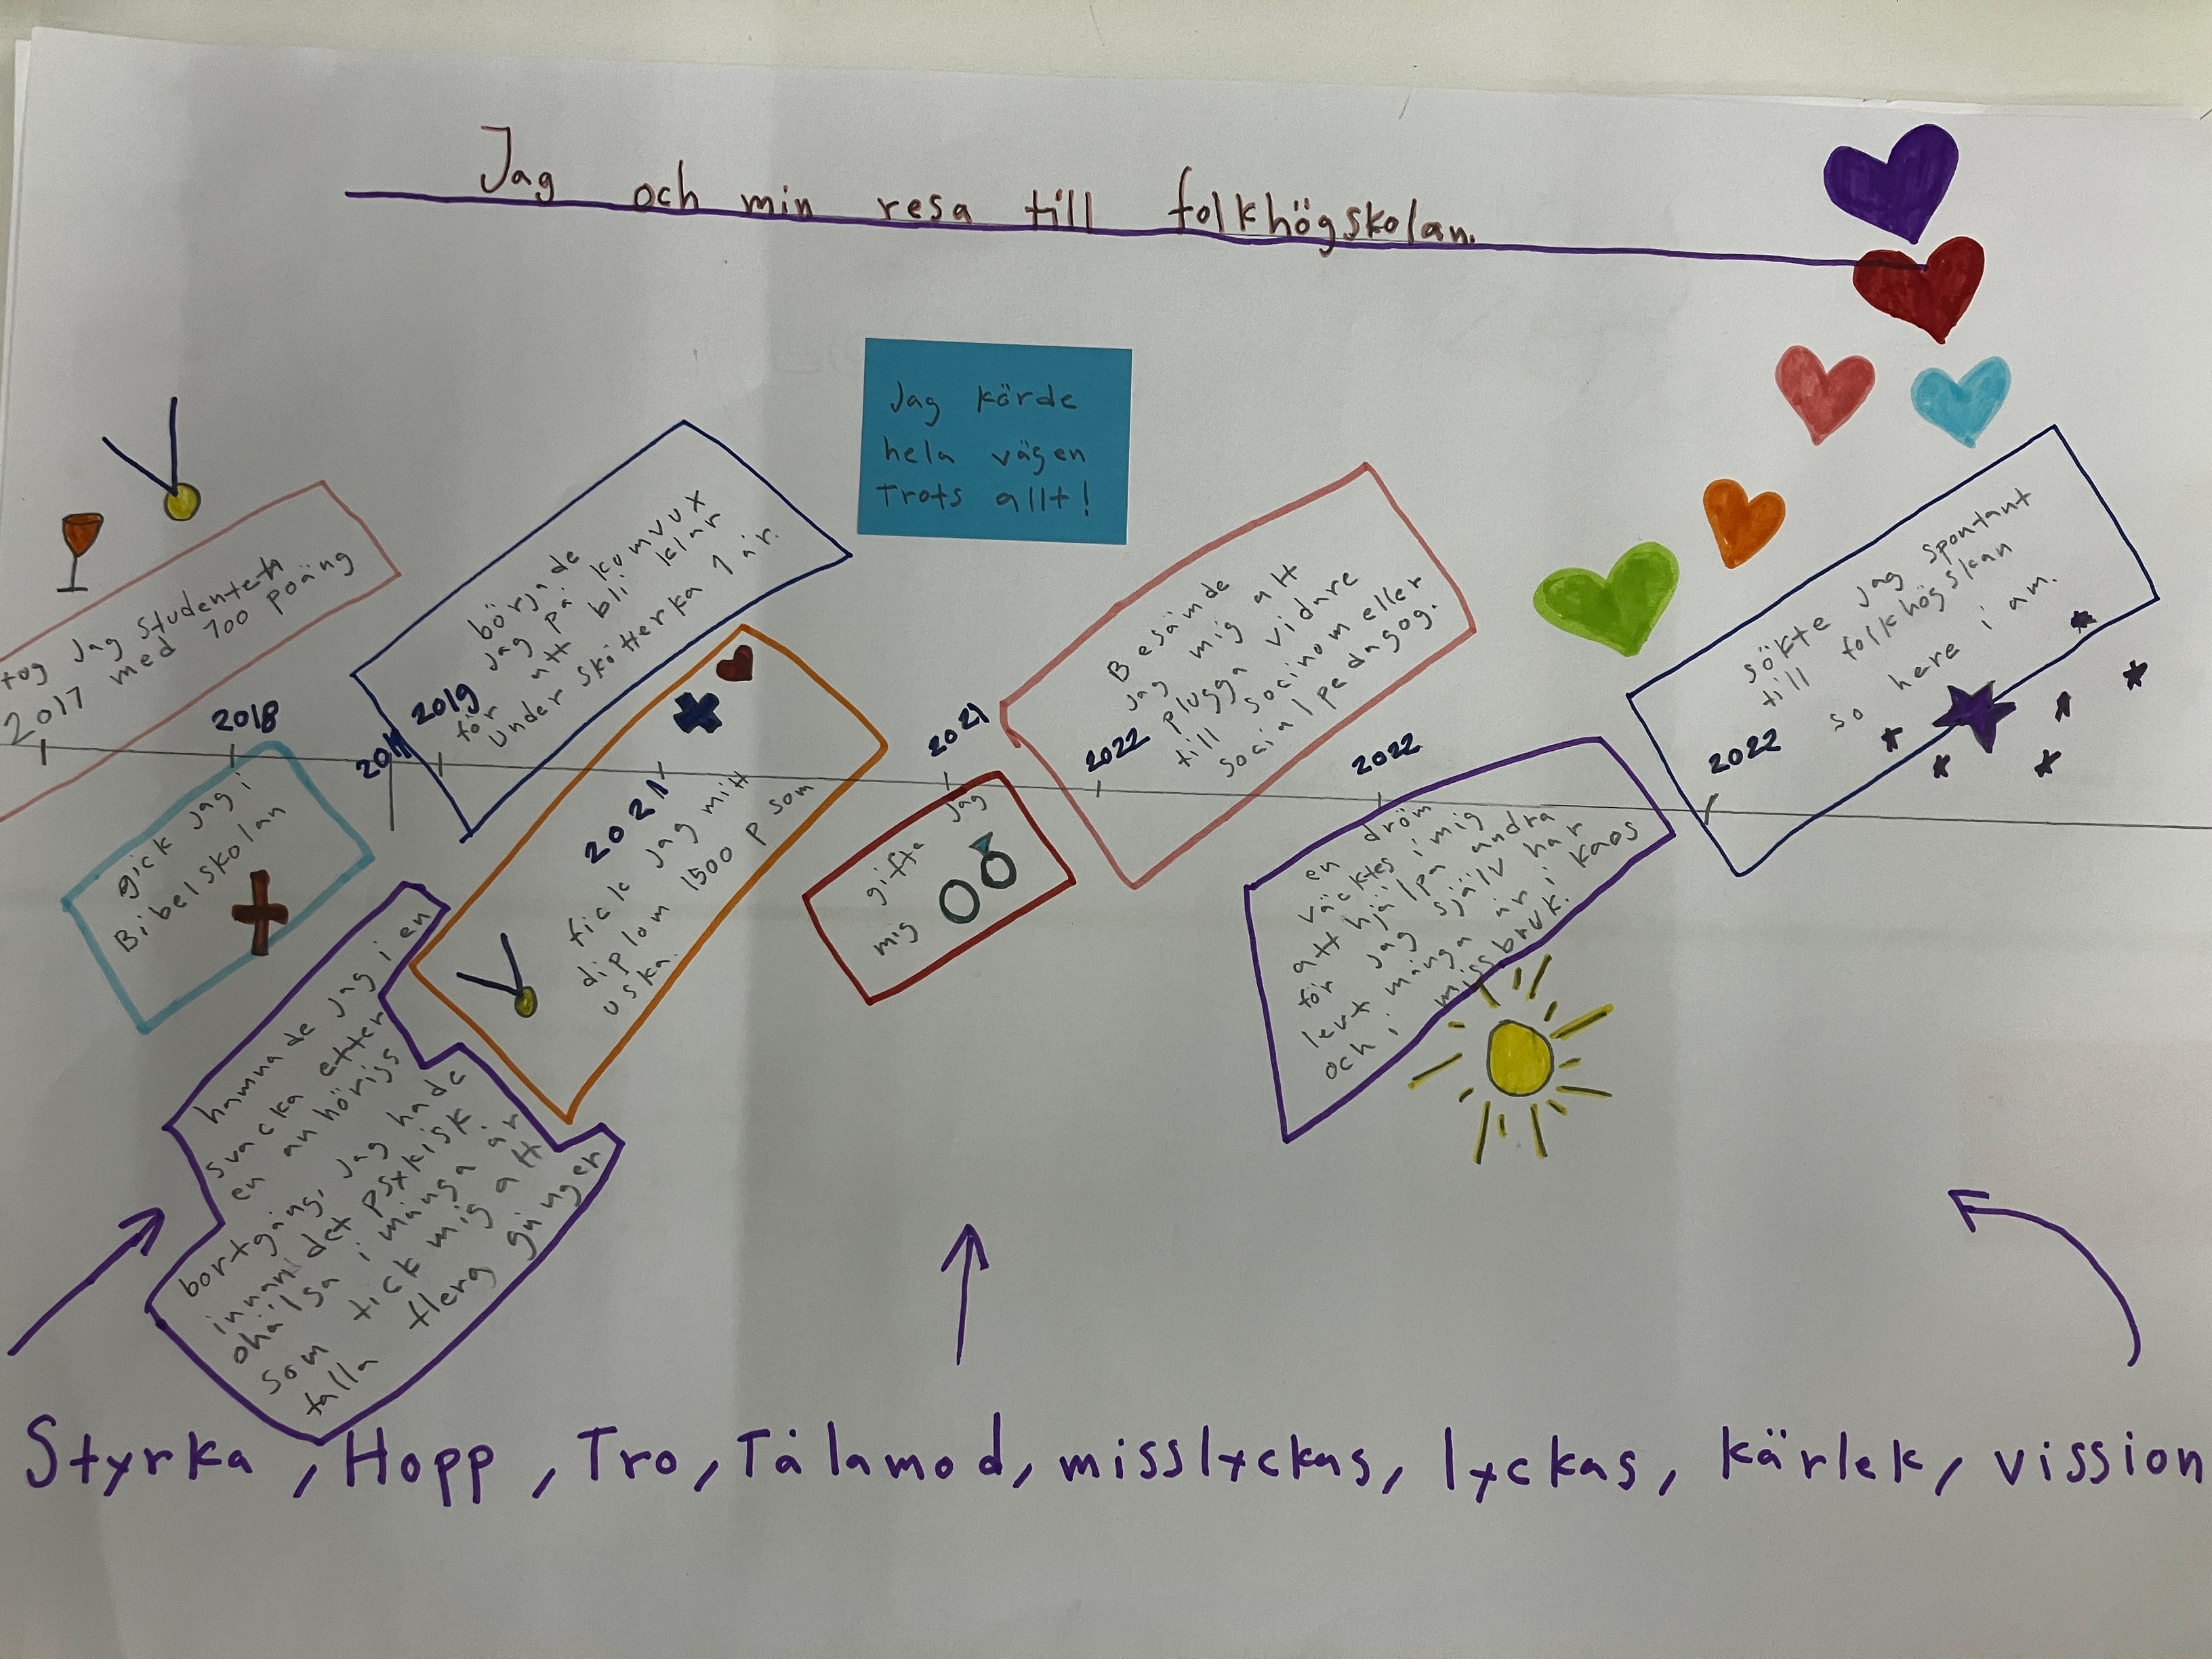 Jag och min resa till folkhögskolan.
Jag körde
hela vägen
Trots allt!
tog Jag studenten
2017 med 700 poäng
2018
gick Jag i
Bibelskolan
hamnade Jag i en
svacka efter
en anhörigs
bortgång, Jag hade
innan det psykisk
ohälsa i många år
som fick mig att
falla flera gånger
2019
började
Jag på komvux
för att bli klar
Undersköterka 1 år.
2021
fick Jag mitt
diplom 1500 p som
uska.
2021
gifta Jag
mig
2022
Besämde
Jag mig att
plugga vidare
till socinom eller
socialpedagog.
2022
en dröm
väcktes i mig
att hjälpa andra
för Jag själv har
levt många år i kaos
och i missbruk.
2022
sökte Jag spontant
till folkhögskan
so here i am.
Styrka, Hopp, Tro, Tålamod, misslyckas, lyckas, kärlek, vission